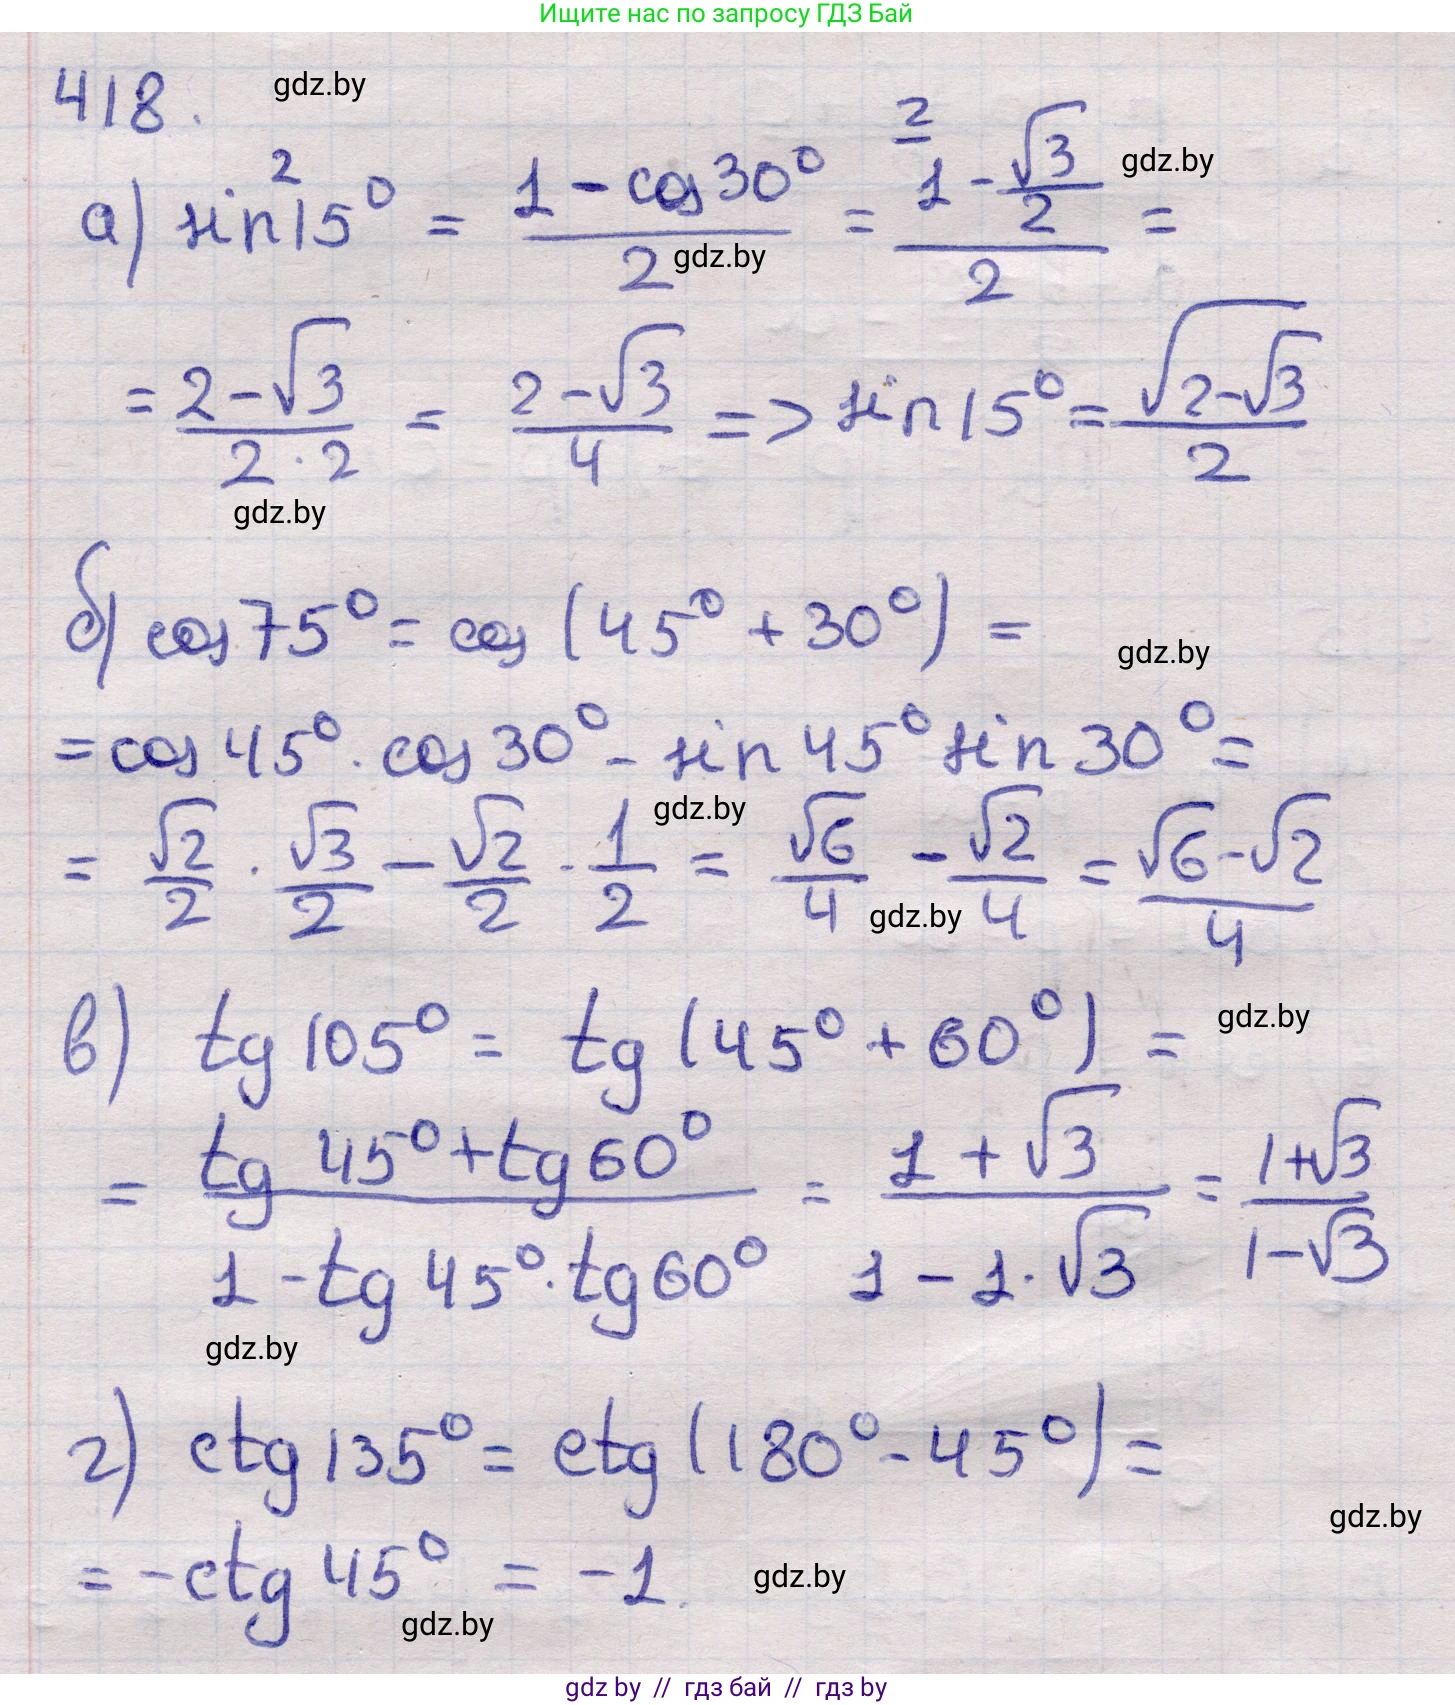 Ищите нас по запросу ГДЗ Бай
418. gdz.by
а) sin²15° = (1 - cos30°)/2 = (1 - √3/2)/2 = gdz.by
gdz.by
= (2-√3)/(2·2) = (2-√3)/4 => sin15° = √(2-√3)/2
gdz.by
б) cos75° = cos(45° + 30°) =
gdz.by
= cos45° · cos30° - sin45° sin30° =
gdz.by
= √2/2 · √3/2 - √2/2 · 1/2 = √6/4 - √2/4 = (√6-√2)/4
gdz.by
в) tg105° = tg(45° + 60°) = gdz.by
= (tg45° + tg60°)/(1 - tg45° · tg60°) = (1 + √3)/(1 - 1·√3) = (1+√3)/(1-√3)
gdz.by
г) ctg135° = ctg(180° - 45°) =
gdz.by
= -ctg45° = -1. gdz.by
gdz.by
gdz by // гдз бай // гдз by